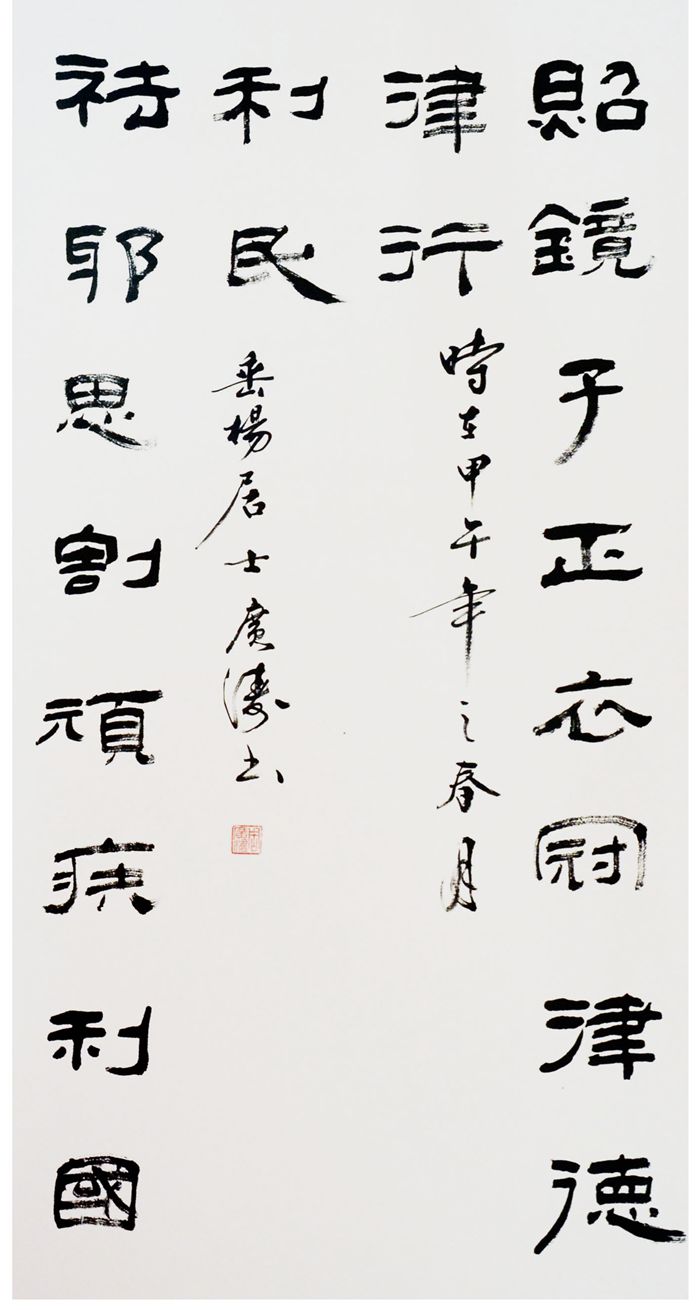 照鏡子正衣冠律德
律行
時在甲午年之春月
祛邪思割頑疾利國
利民
垂楊居士廣濤書